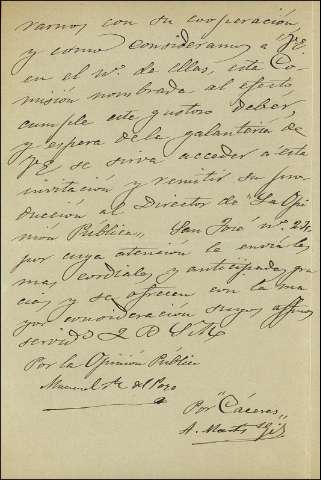 rarnos con su cooperación,
y como consideramos á V.E.
en el nº. de ellas, esta Co-
misión nombrada al efecto,
cumple este gustoso deber,
y espera de la galantería de
V.E, se sirva acceder a esta
invitación y remitir su pro-
ducción al Director de "La Opi-
nión Pública,, San José nº. 24.
por cuya atención le envía las
mas cordiales y anticipadas gra-
cias y se ofrecen con la ma-
yor consideración suyos affmos
servids Q B S M
Por la Opinión Pública
Manuel del Pozo
Por "Cáceres,,
A. Gil